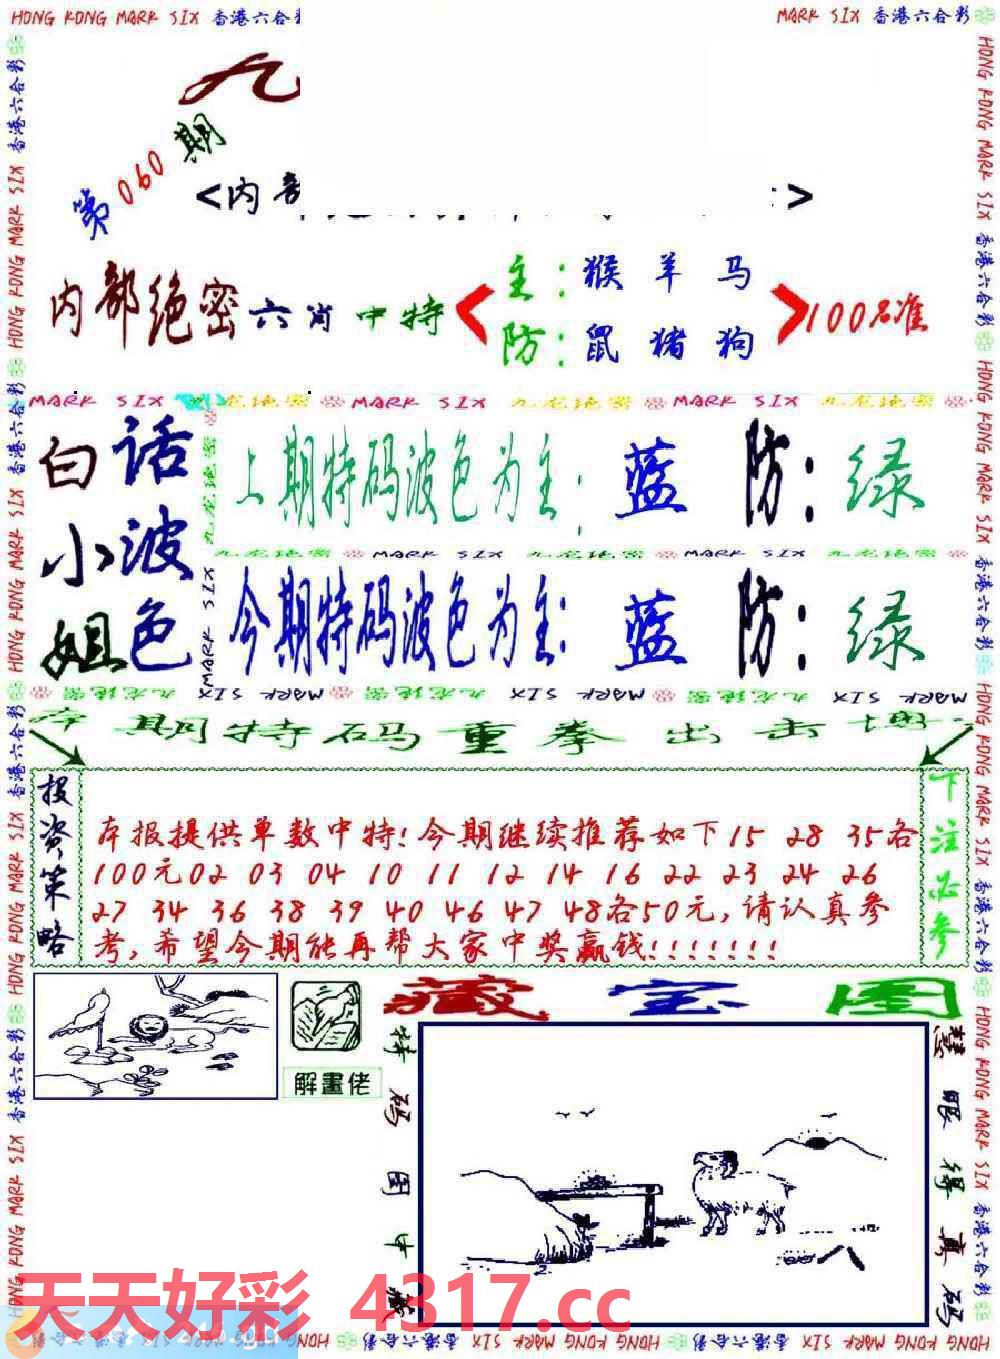 HONG KONG MARK SIX 香港六合彩
MARK SIX 香港六合彩
九
第060期
<内部
>
内部绝密六肖中特
主:猴羊马
防:鼠猪狗
100%准
MARK SIX 九龙绝密 MARK SIX 九龙绝密 MARK SIX 九龙绝密
白小姐
话波色
上期特码波色为主: 蓝 防: 绿
九龙绝密 MARK SIX 九龙绝密 MARK SIX 九龙绝密
今期特码波色为主: 蓝 防: 绿
本期特码重拳出击
投资策略
本报提供单数中特!今期继续推荐如下15 28 35各
100元02 03 04 10 11 12 14 16 22 23 24 26
27 34 36 38 39 40 46 47 48各50元,请认真参
考,希望今期能再帮大家中奖赢钱!!!!!!!
下注必参
解畫佬
藏宝图
特码图中藏
慧眼得真码
天天好彩 4317.cc
HONG KONG MARK SIX 香港六合彩